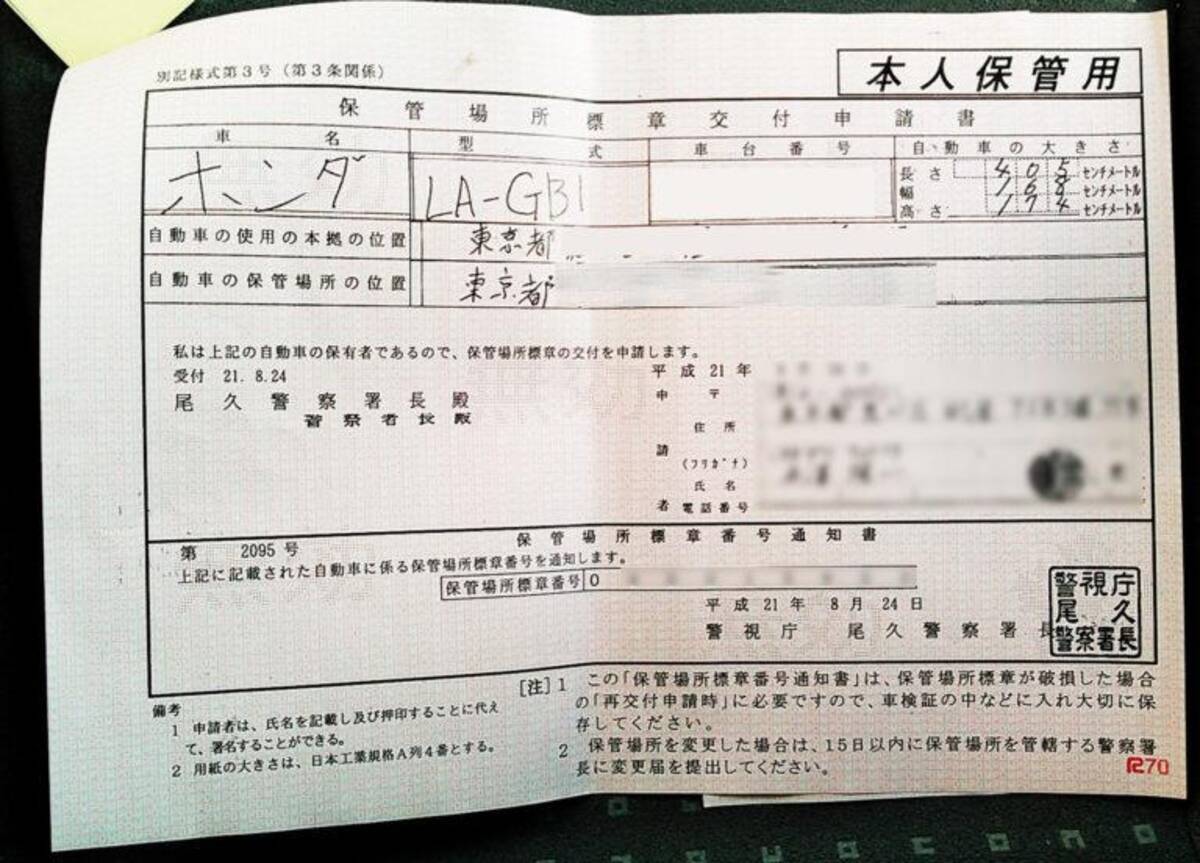 別記様式第3号(第3条関係)
本人保管用
保管場所標章交付申請書
車名 型式 車台番号 自動車の大きさ
ホンダ LA-GB1
長さ 405 センチメートル
幅 168 センチメートル
高さ 174 センチメートル
自動車の使用の本拠の位置 東京都
自動車の保管場所の位置 東京都
私は上記の自動車の保有者であるので、保管場所標章の交付を申請します。
受付 21.8.24 平成21年
尾久警察署長殿
警察署長殿
申請者
〒
住所
(フリガナ)
氏名
電話番号
保管場所標章番号通知書
第 2095 号
上記に記載された自動車に係る保管場所標章番号を通知します。
保管場所標章番号 0
平成21年 8月 24日
警視庁 尾久警察署長
警視庁
尾久
警察署長
備考
1 申請者は、氏名を記載し及び押印することに代え
て、署名することができる。
2 用紙の大きさは、日本工業規格A列4番とする。
[注] 1 この「保管場所標章番号通知書」は、保管場所標章が破損した場合
の「再交付申請時」に必要ですので、車検証の中などに入れ大切に保
存してください。
2 保管場所を変更した場合は、15日以内に保管場所を管轄する警察署
長に変更届を提出してください。
R70